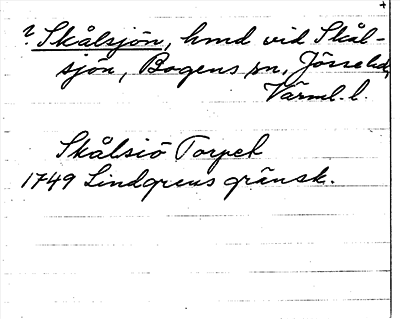 ? Skålsjön, hmd vid Skål-
sjön, Bogens sn, Jösse hd,
Värml. l.
Skålsiö Torpet
1749 Lindgrens gränsk.